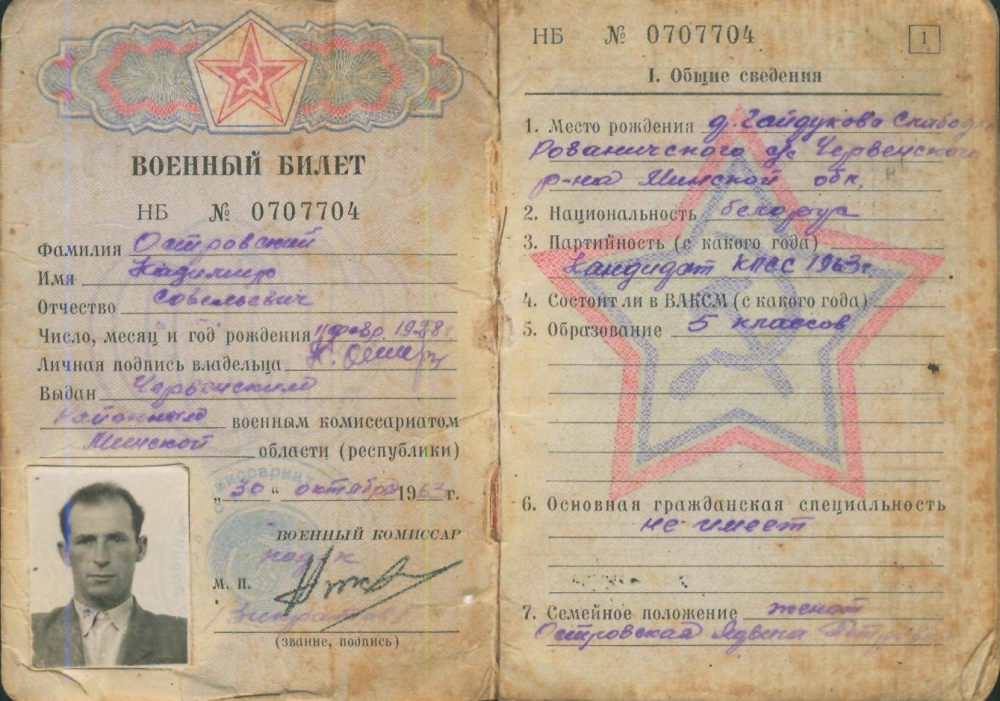 ВОЕННЫЙ БИЛЕТ
НБ № 0707704
Фамилия Островский
Имя
Отчество Совельевич
Число, месяц и год рождения 11 февр. 1928 г.
Личная подпись владельца
Выдан Червенским
Районным военным комиссариатом
Минской области (республики)
„30“ октября 1963 г.
ВОЕННЫЙ КОМИССАР
М. П.
(звание, подпись)
НБ № 0707704
1
I. Общие сведения
1. Место рождения д. Гайдукова Слабода
Рованичского с/с Червенского
р-на Минской обл.
2. Национальность белорус
3. Партийность (с какого года)
Кандидат КПСС 1963 г.
4. Состоит ли в ВЛКСМ (с какого года)
5. Образование 5 классов
6. Основная гражданская специальность
не имеет
7. Семейное положение женат
Островская Ядвига